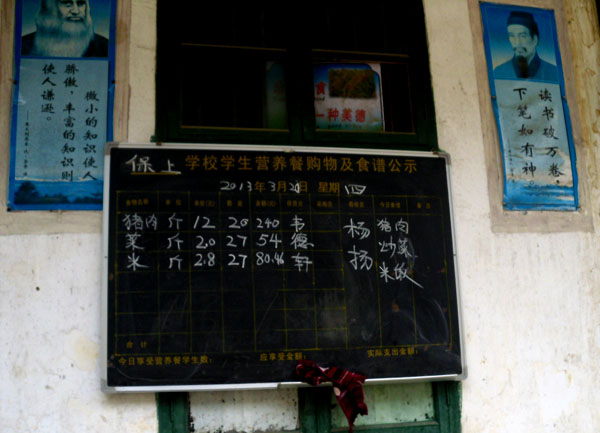 微小的知识使人
骄傲，丰富的知识则
使人谦逊。
食
一种美德
读书破万卷，
下笔如有神。
保上学校学生营养餐购物及食谱公示
2013年3月28日 星期四
食物名称 单位 单价(元) 数量 金额(元) 今日食谱
猪肉 斤 12 20 240 韦 杨 猪肉
菜 斤 2.0 27 54 德 扬 炒菜
米 斤 2.8 27 80.46 轩 米饭
合计
今日享受营养餐学生数： 应享受金额： 实际支出金额：